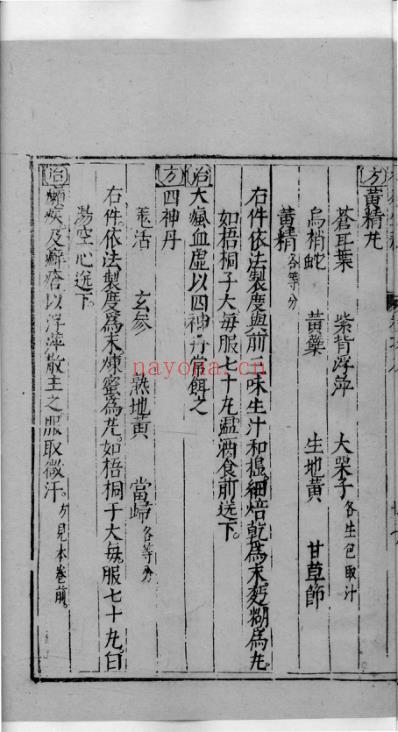 方 黃精丸
蒼耳葉 紫背浮萍 大栗子各生包取汁
烏梢蛇 黃藥 生地黃 甘草節
黃精各等分
右件依法製度與前三味生汁和搗細焙乾爲末麪糊爲丸
如梧桐子大每服七十丸溫酒食前送下
治 大瘋血虛以四神丹常餌之
方 四神丹
羌活 玄參 熟地黃 當歸各等分
右件依法製度爲末煉蜜爲丸如梧桐子大每服七十丸白
湯空心送下
治 癩疾及癬瘡以浮萍散主之服取微汗方見本卷前
nayona.cn